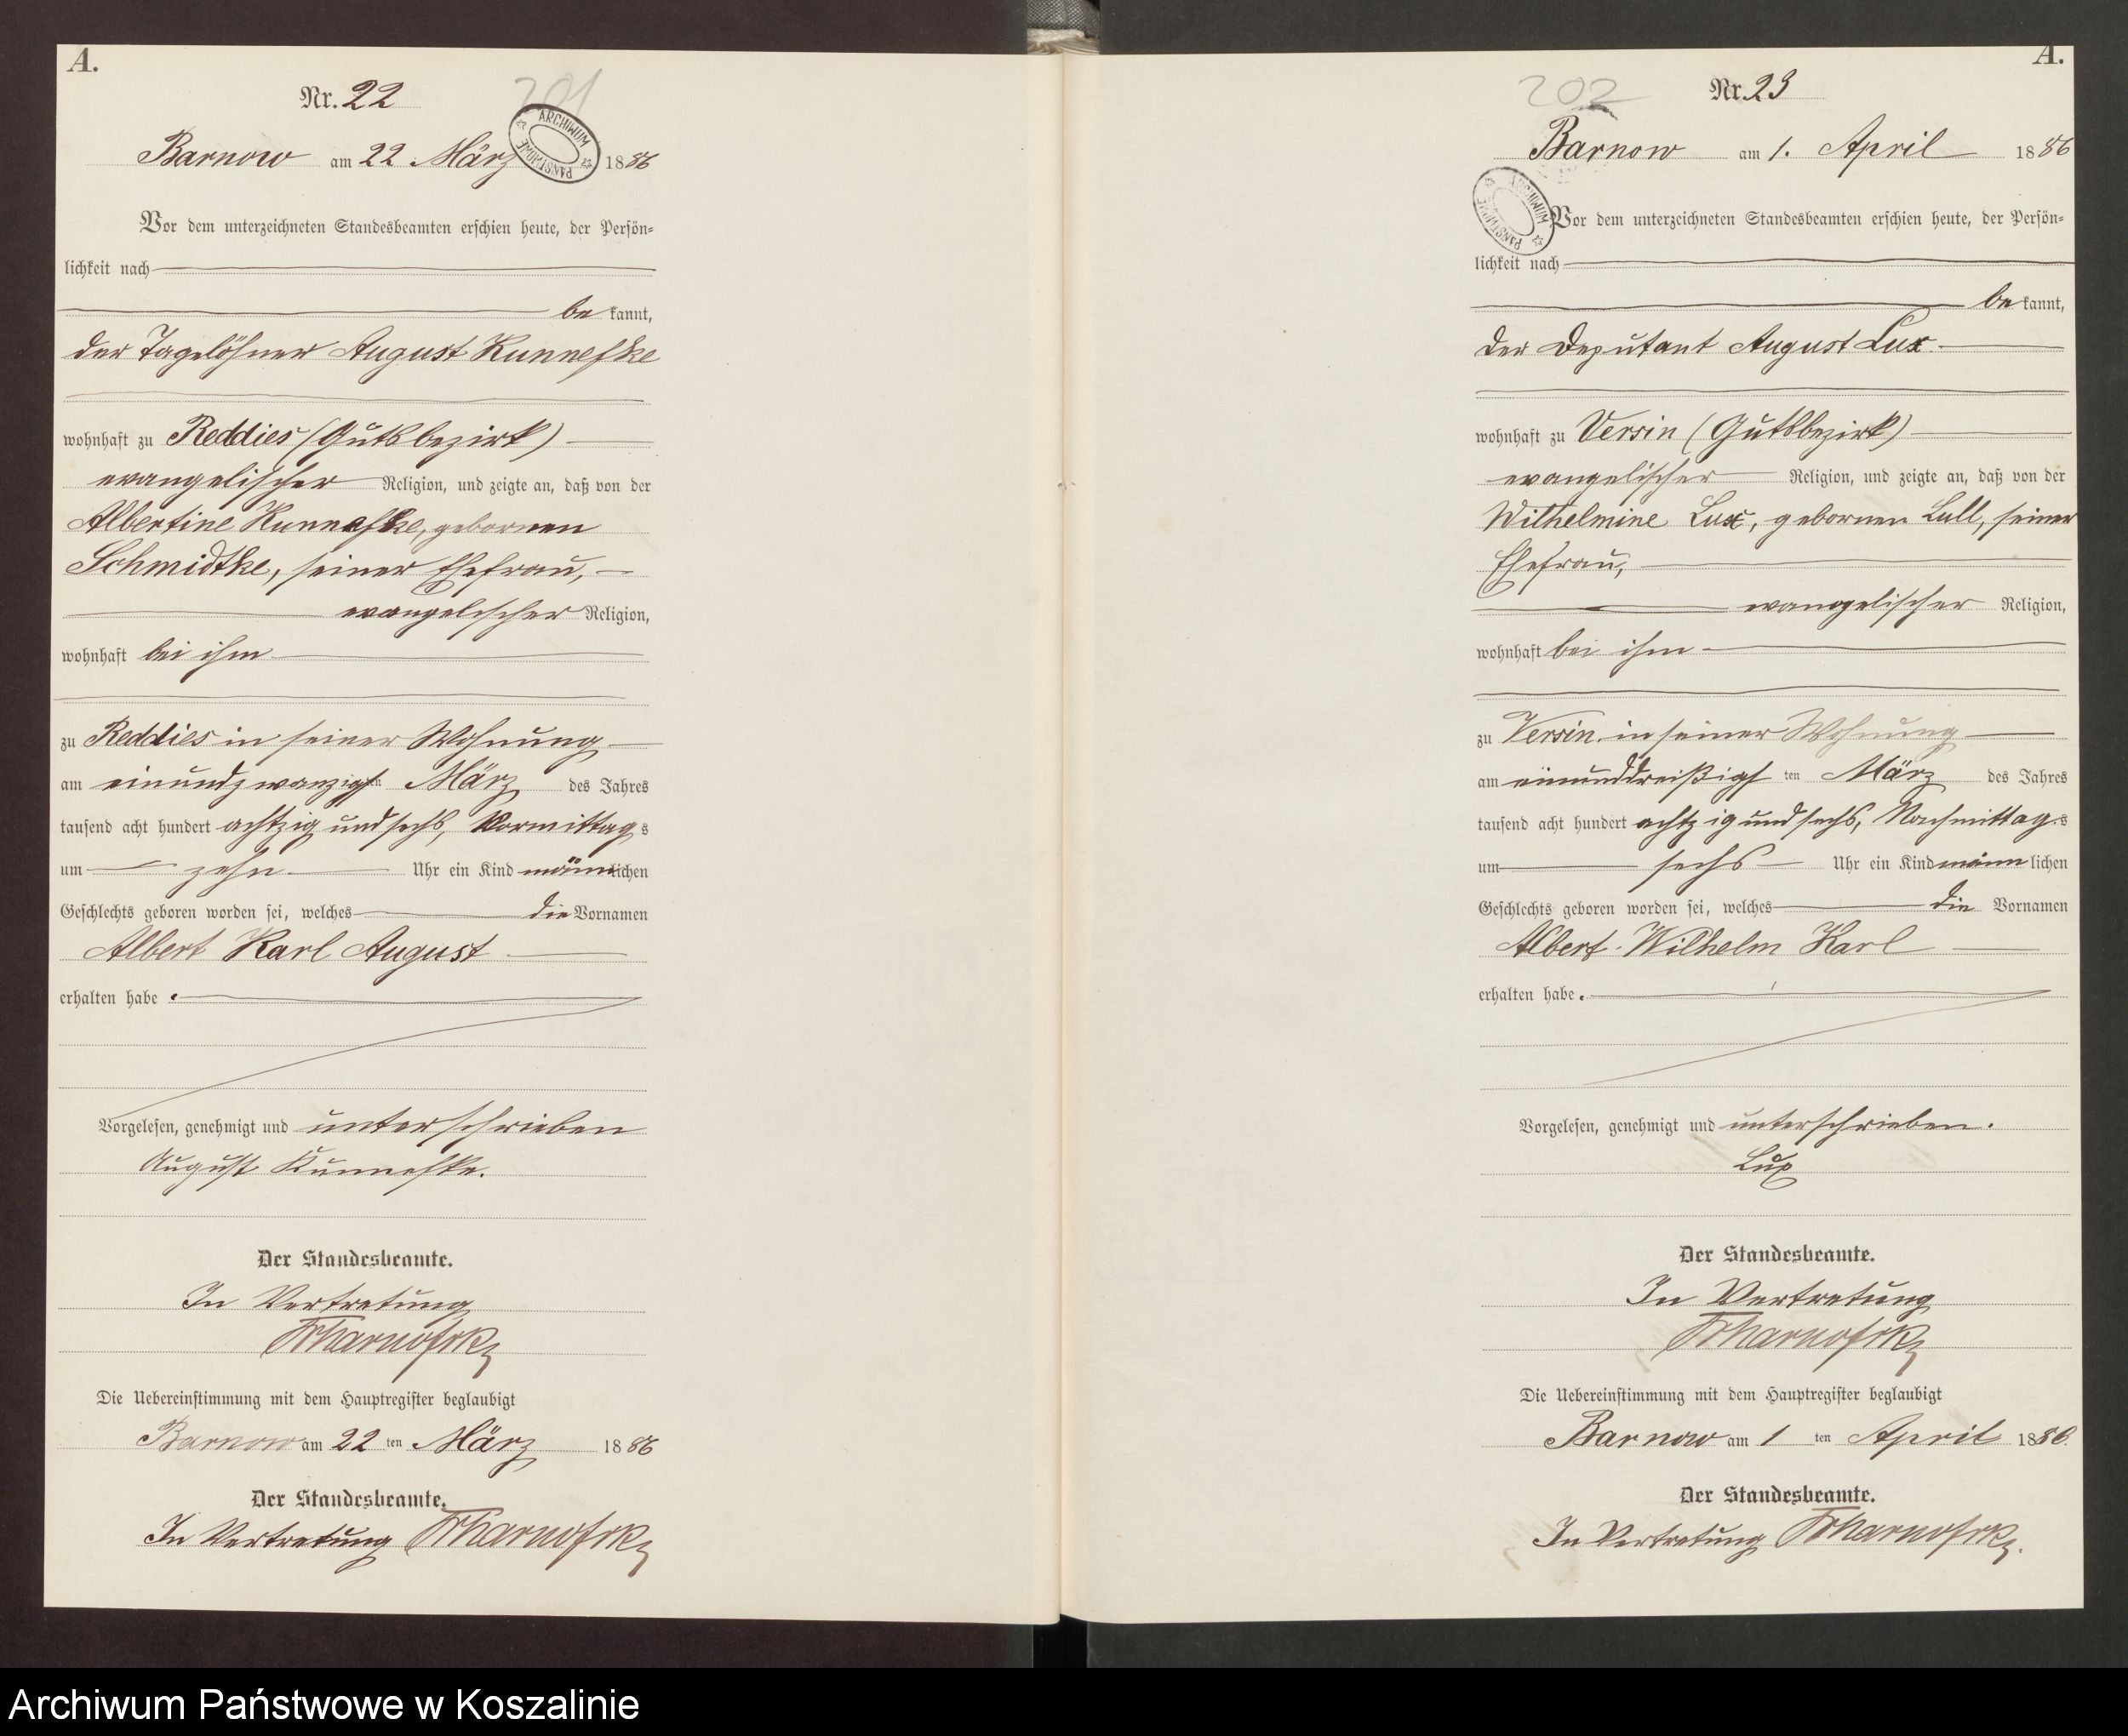 A.
Nr. 22
201
ARCHIWUM PAŃSTWOWE
Barnow am 22 März 1886
Vor dem unterzeichneten Standesbeamten erschien heute, der Persön-
lichkeit nach
be kannt,
der Tagelöhner August Kunnefke
wohnhaft zu Reddies (Gutsbezirk)
evangelischer Religion, und zeigte an, daß von der
Albertine Kunnefke, gebornen
Schmidtke, seiner Ehefrau,
evangelischer Religion,
wohnhaft bei ihm
zu Reddies in seiner Wohnung
am einundzwanzigsten März des Jahres
tausend acht hundert achtzig und sechs, Vormittags
um zehn Uhr ein Kind männlichen
Geschlechts geboren worden sei, welches die Vornamen
Albert Karl August
erhalten habe.
Vorgelesen, genehmigt und unterschrieben
August Kunnefke.
Der Standesbeamte.
In Vertretung
Die Uebereinstimmung mit dem Hauptregister beglaubigt
Barnow am 22 ten März 1886
Der Standesbeamte.
In Vertretung
A.
Nr. 23
202
Barnow am 1. April 1886
ARCHIWUM PAŃSTWOWE
Vor dem unterzeichneten Standesbeamten erschien heute, der Persön-
lichkeit nach
be kannt,
der Deputant August Lux
wohnhaft zu Versin (Gutsbezirk)
evangelischer Religion, und zeigte an, daß von der
Wilhelmine Lux, gebornen Lull, seiner
Ehefrau,
evangelischer Religion,
wohnhaft bei ihm
zu Versin in seiner Wohnung
am einunddreißigs ten März des Jahres
tausend acht hundert achtzig und sechs, Nachmittags
um sechs Uhr ein Kind männlichen
Geschlechts geboren worden sei, welches die Vornamen
Albert Wilhelm Karl
erhalten habe.
Vorgelesen, genehmigt und unterschrieben.
Lux
Der Standesbeamte.
In Vertretung
Die Uebereinstimmung mit dem Hauptregister beglaubigt
Barnow am 1 ten April 1886.
Der Standesbeamte.
In Vertretung
Archiwum Państwowe w Koszalinie